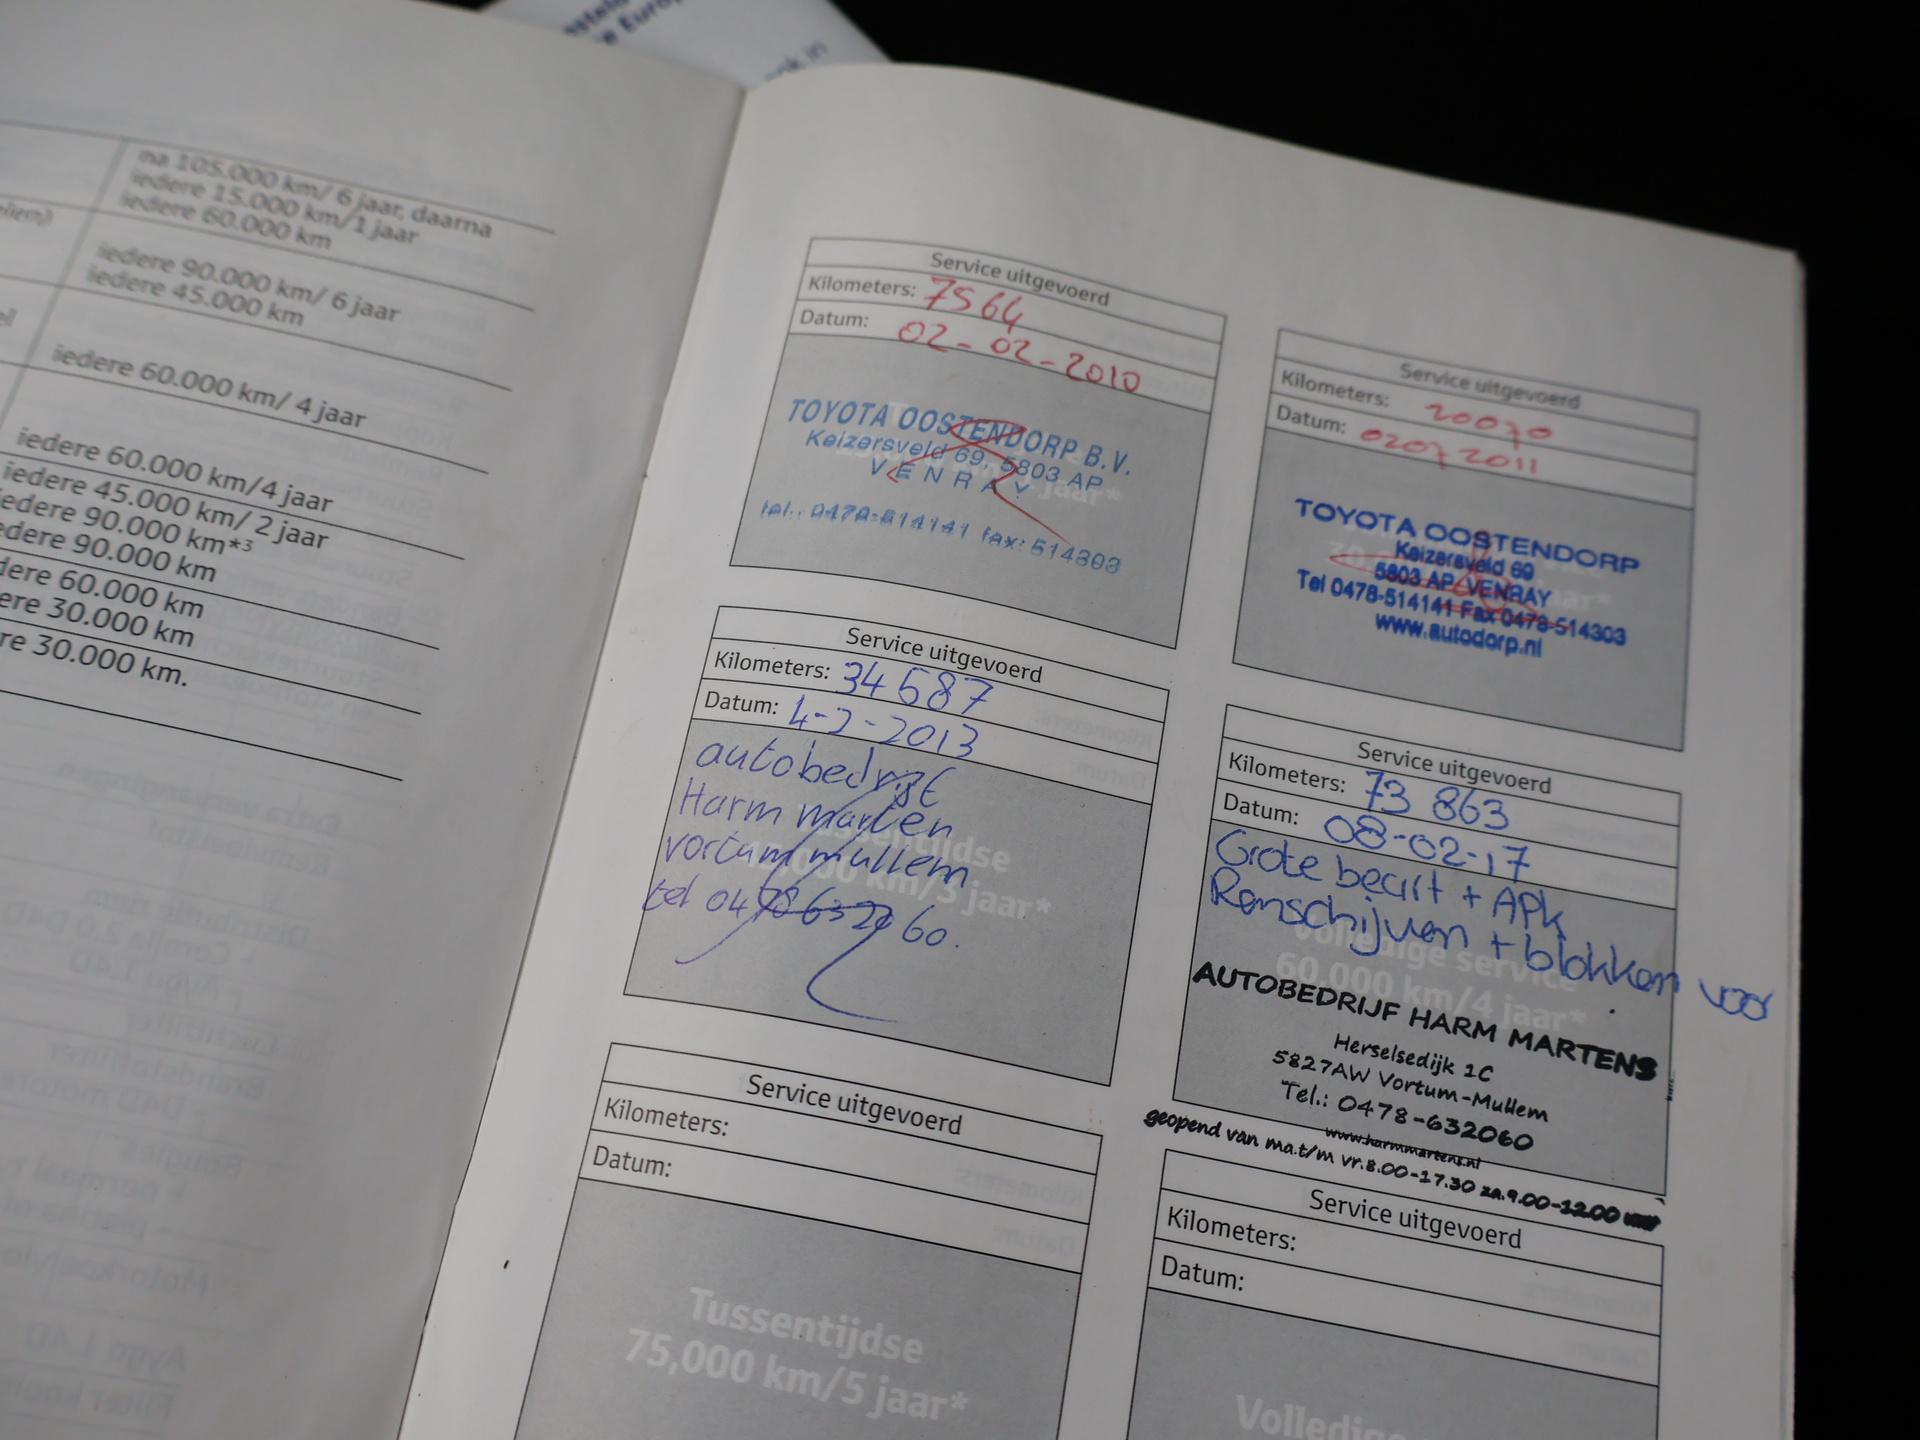 na 105.000 km/ 6 jaar, daarna
iedere 15.000 km/1 jaar
iedere 60.000 km
iedere 90.000 km/ 6 jaar
iedere 45.000 km
iedere 60.000 km/ 4 jaar
iedere 60.000 km/4 jaar
iedere 45.000 km/ 2 jaar
iedere 90.000 km*³
edere 90.000 km
dere 60.000 km
ere 30.000 km
re 30.000 km.
Service uitgevoerd
Kilometers: 7564
Datum: 02-02-2010
TOYOTA OOSTENDORP B.V.
Keizersveld 69, 5803 AP
VENRAY
jaar*
tel.: 0478-514141 fax: 514303
Service uitgevoerd
Kilometers: 20070
Datum: 02072011
TOYOTA OOSTENDORP
Keizersveld 69
5803 AP VENRAY
Tel 0478-514141 Fax 0478-514303
www.autodorp.nl
Service uitgevoerd
Kilometers: 34587
Datum: 4-2-2013
autobedrijf
Harm marten
vortum mullem
tel 0478632060.
Service uitgevoerd
Kilometers: 73 863
Datum: 08-02-17
Grote beurt + APK
Remschijven + blokken voor
Volledige service
60,000 km/4 jaar*
AUTOBEDRIJF HARM MARTENS
Herselsedijk 1C
5827AW Vortum-Mullem
Tel.: 0478-632060
www.harmmartens.nl
geopend van ma.t/m vr.8.00-17.30 za.9.00-12.00 uur
Service uitgevoerd
Kilometers:
Datum:
Tussentijdse
75,000 km/5 jaar*
Service uitgevoerd
Kilometers:
Datum:
Volledige